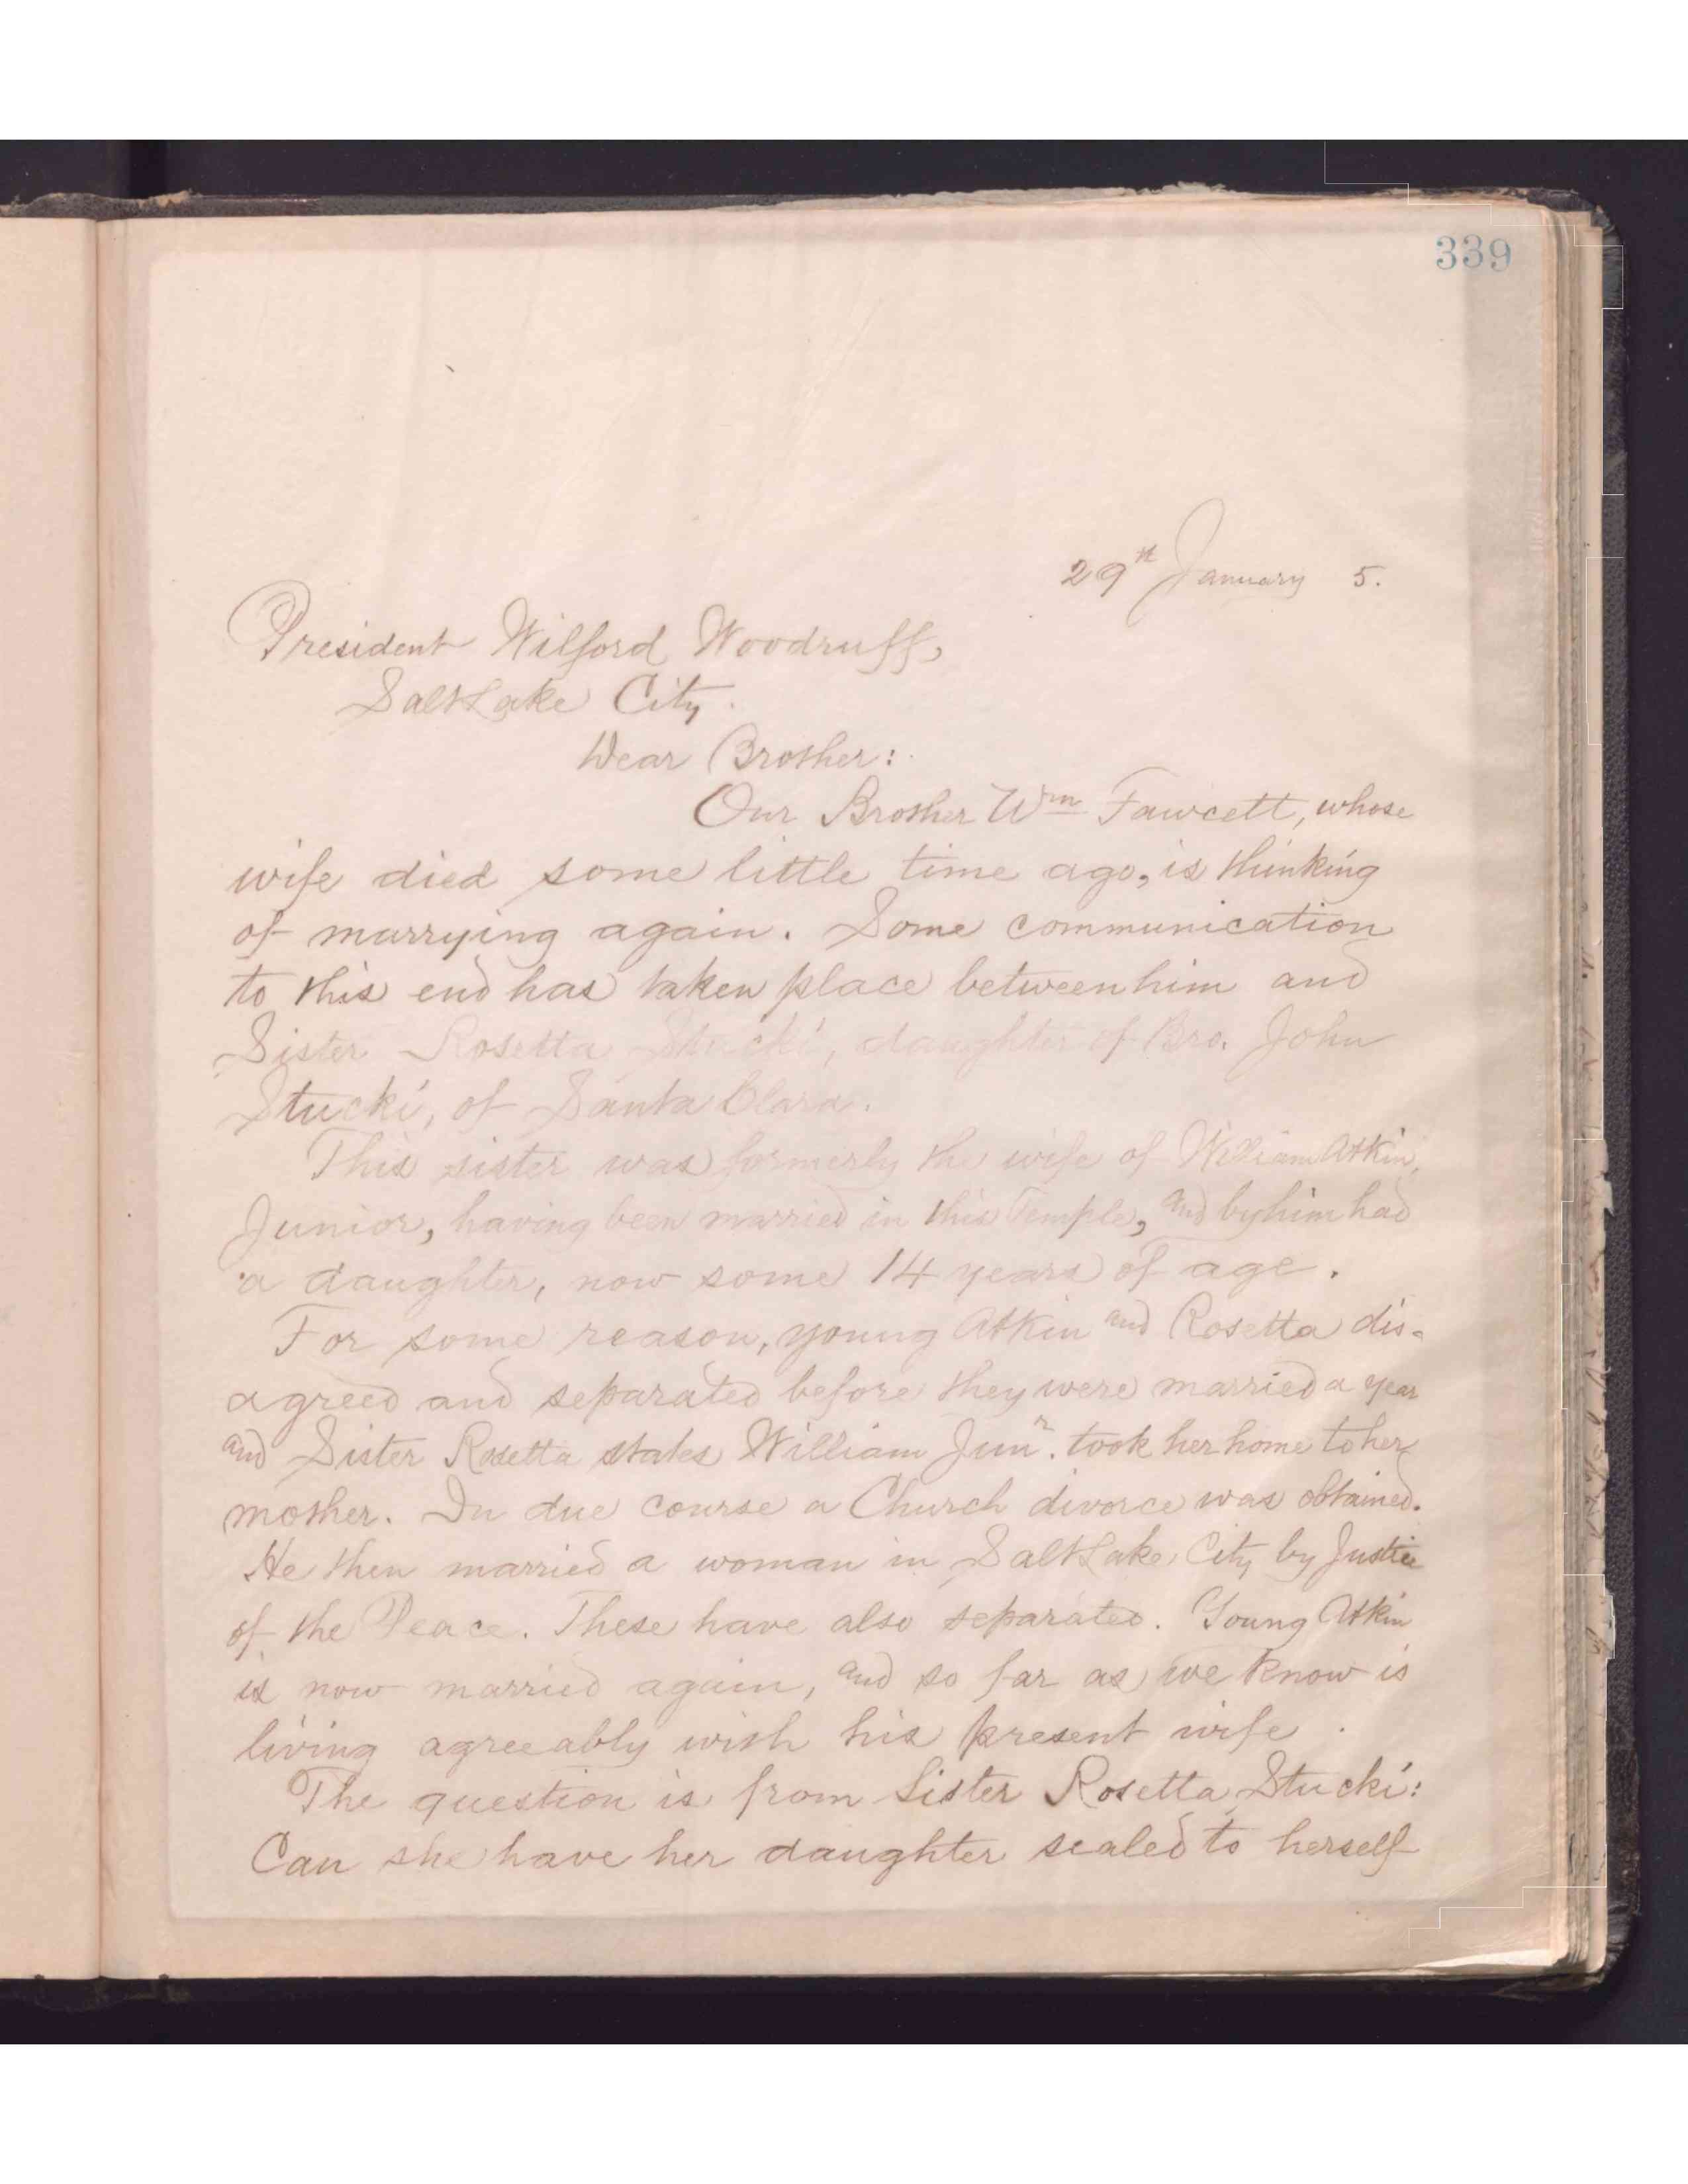 339
29th January 5.
President Wilford Woodruff,
Salt Lake City.
Dear Brother:
Our Brother Wm Fawcett, whose
wife died some little time ago, is thinking
of marrying again. Some communication
to this end has taken place between him and
Sister Rosetta Stucki, daughter of Bro. John
Stucki, of Santa Clara.
This sister was formerly the wife of William Atkin,
Junior, having been married in this Temple, and by him had
a daughter, now some 14 years of age.
For some reason, young Atkin and Rosetta dis-
agreed and separated before they were married a year
and Sister Rosetta states William Junr. took her home to her
mother. In due course a Church divorce was obtained.
He then married a woman in Salt Lake City by Justice
of the Peace. These have also separated. Young Atkin
is now married again, and so far as we know is
living agreeably with his present wife.
The question is from Sister Rosetta Stucki:
Can she have her daughter sealed to herself